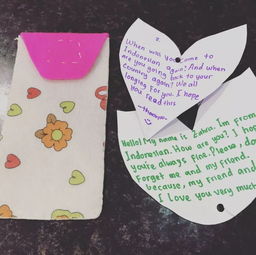 When will you come to
Indonesian again? And when
are you going back to your
country again? We all
longing for you. I hope
you read this
Hello! My name is Zahra. Im from
Indonesian. How are you? I hope
you're always fine. Please, don
Forget me and my friend.
because, my friend and
I love you very much